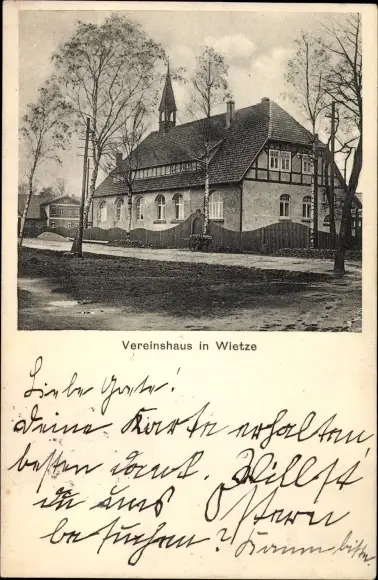 Vereinshaus in Wietze
Liebe Grete!
Deine Karte erhalten,
besten Dank. Willst
du uns Ostern
besuchen? Kann bitte.